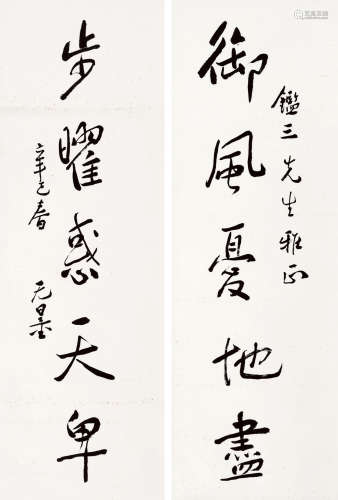 御風憂地盡
鑑三先生雅正
步曜惑天卑
辛巳春
无量